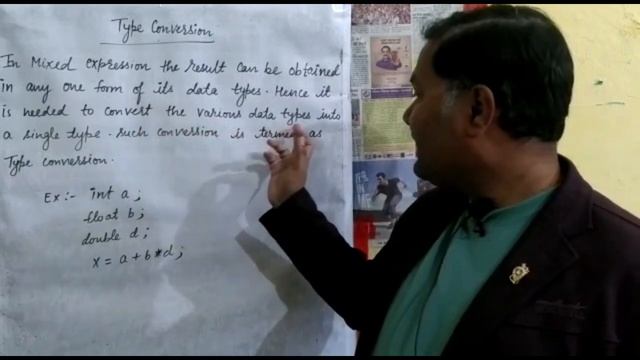 Type Conversion
In Mixed expression the result can be obtained
in any one form of its data types. Hence it
is needed to convert the various data types into
a single type. such conversion is termed as
Type conversion.
Ex:- int a;
float b;
double d;
x = a + b * d;